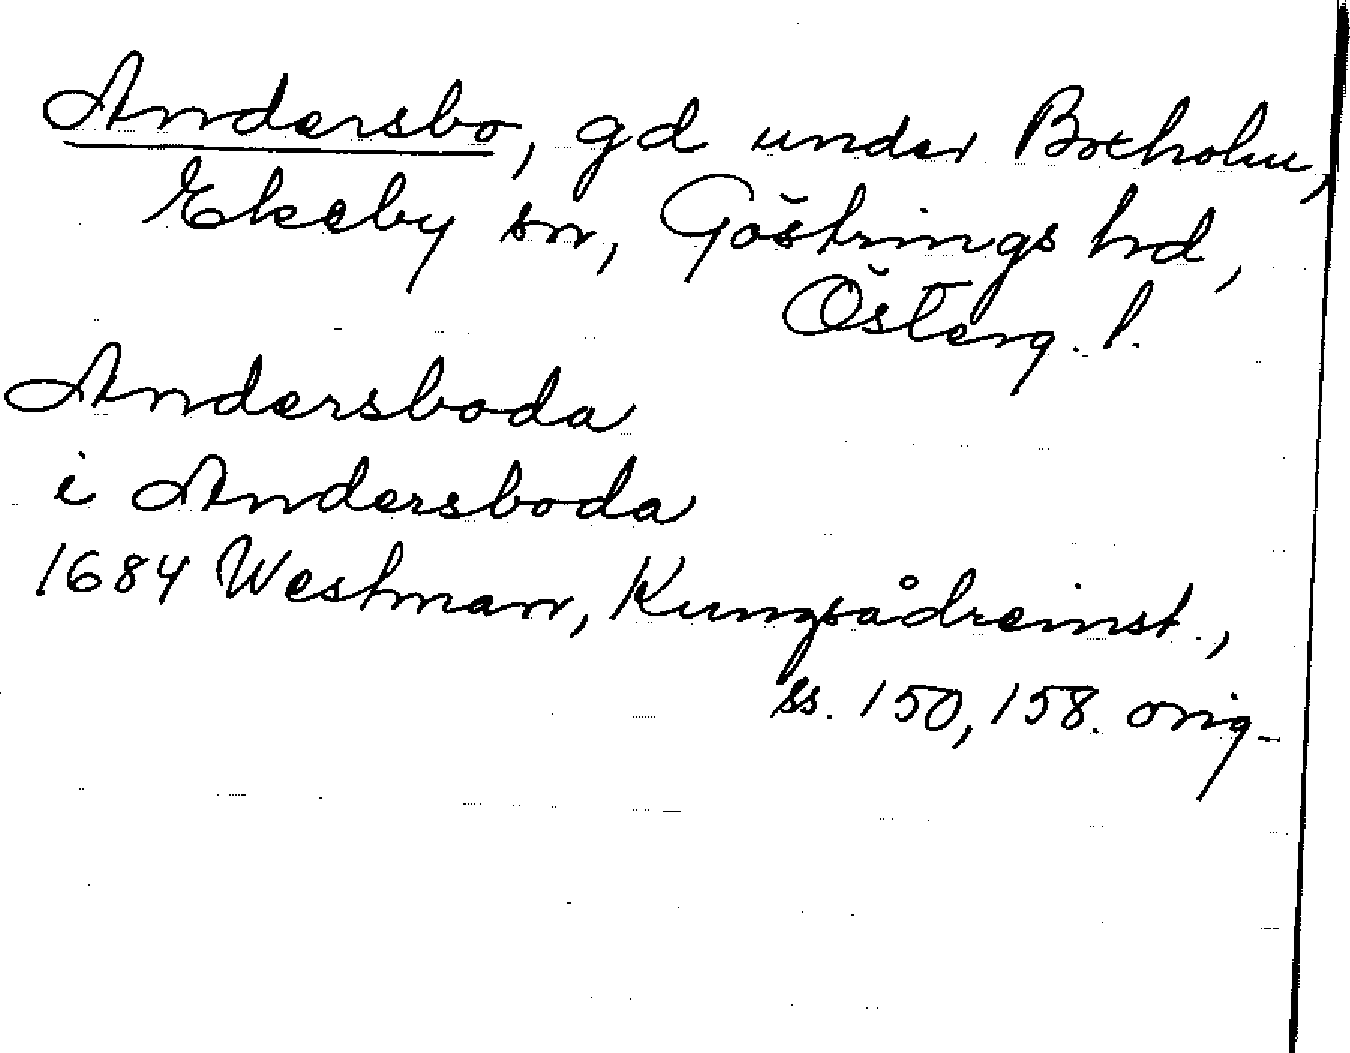 Andersbo, gd under Boxholm,
Ekeby sn, Göstrings hrd,
Österg. l.
Andersboda
i Andersboda
1684 Westman, Kungsådreinst.,
ss. 150, 158. orig.